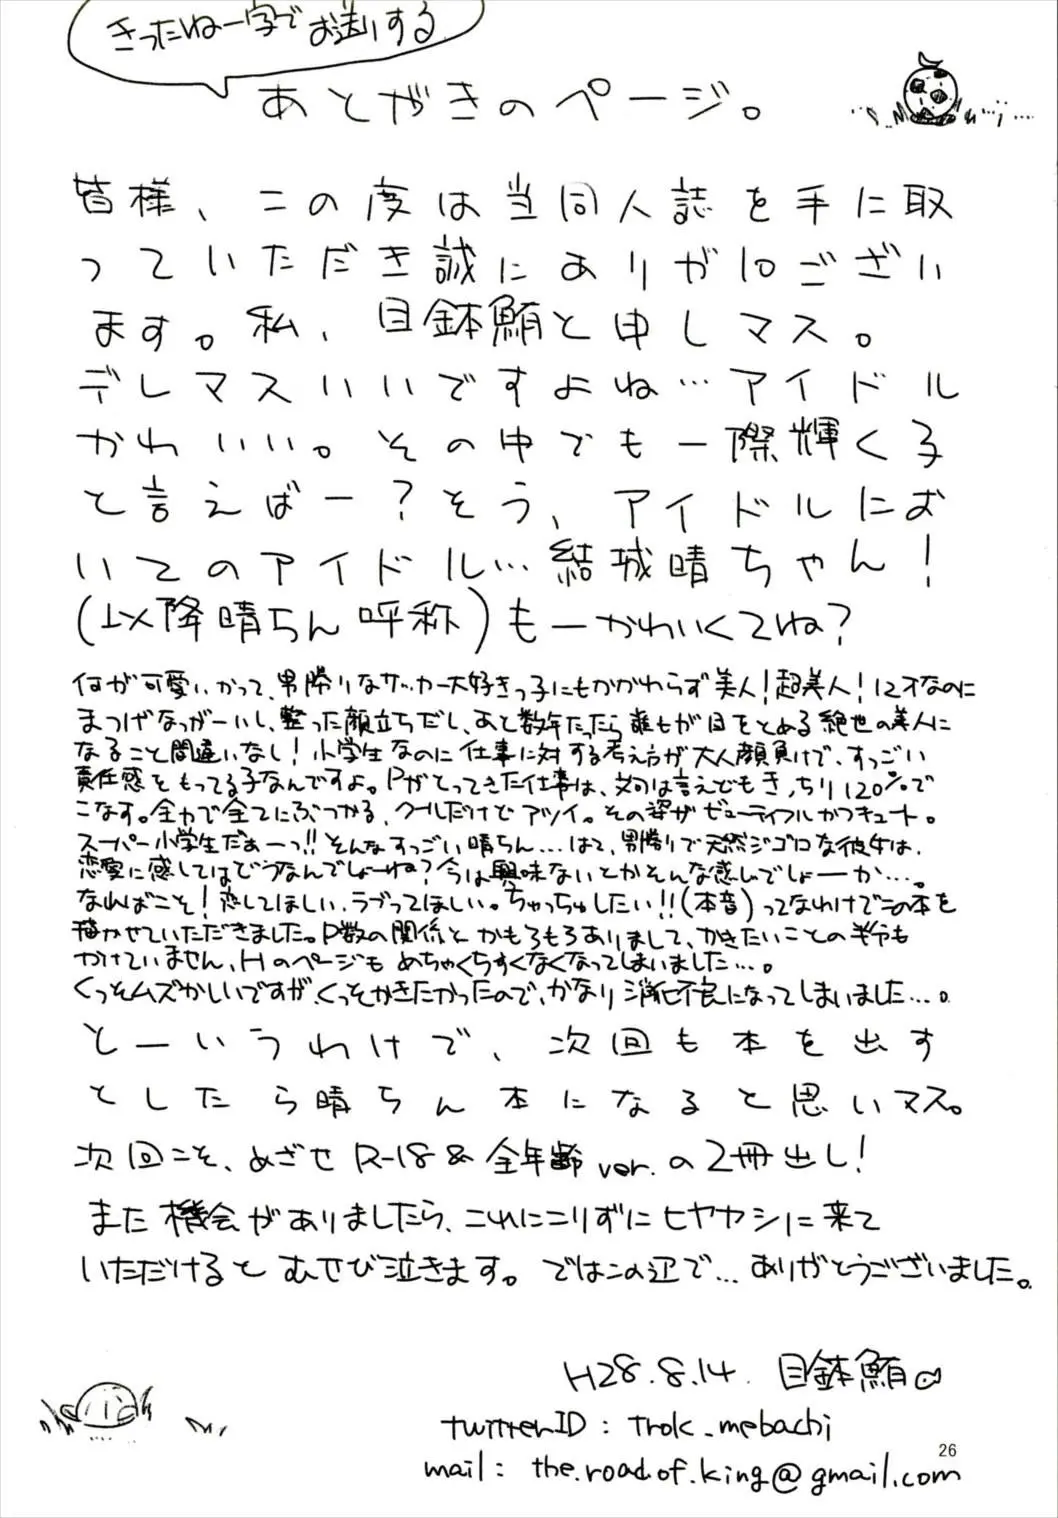 きったねー字でお送りする
あとがきのページ。
皆様、この度は当同人誌を手に取
っていただき誠にありがとうござい
ます。私、目鉢鮪と申しマス。
デレマスいいですよね…アイドル
かわいい。その中でも一際輝く子
と言えばー?そう、アイドルにお
いてのアイドル…結城晴ちゃん!
(以降晴ちん呼称)もーかわいくてね?
何が可愛いかって、男勝りなサッカー大好きっ子にもかかわらず美人!超美人!12才なのに
まつげなっがーいし、整った顔立ちだし、あと数年たったら誰もが目をとめる絶世の美人に
なること間違いなし!小学生なのに仕事に対する考え方が大人顔負けで、すっごい
責任感をもってる子なんですよ。Pがとってきた仕事は、文句は言えどもきっちり120%で
こなす。全力で全てにぶつかる、クールだけどアツイ。その姿がビューティフルかつキュート。
スーパー小学生だぁーっ!!そんなすっごい晴ちん…はて、男勝りで天然ジゴロな彼女は、
恋愛に感してはどうなんでしょーね?今は興味ないとかそんな感じでしょーか…。
なればこそ!恋してほしい、ラブってほしい。ちゅっちゅしたい!!(本音)ってなわけでこの本を
描かせていただきました。P数の関係とかもろもろありまして、かきたいことの半分も
かけていません、Hのページもめちゃくちゃすくなくなってしまいました…。
くっそムズかしいですが、くっそかきたかったので、かなり消化不良になってしまいました…。
とーいうわけで、次回も本を出す
としたら晴ちん本になると思いマス。
次回こそ、めざせR-18&全年齢ver.の2冊出し!
また機会がありましたら、これにこりずにヒヤカシに来て
いただけるとむせび泣きます。ではこの辺で…ありがとうございました。
H28.8.14. 目鉢鮪
twitterID : Trok_mebachi
26
mail : the.road.of.king@gmail.com